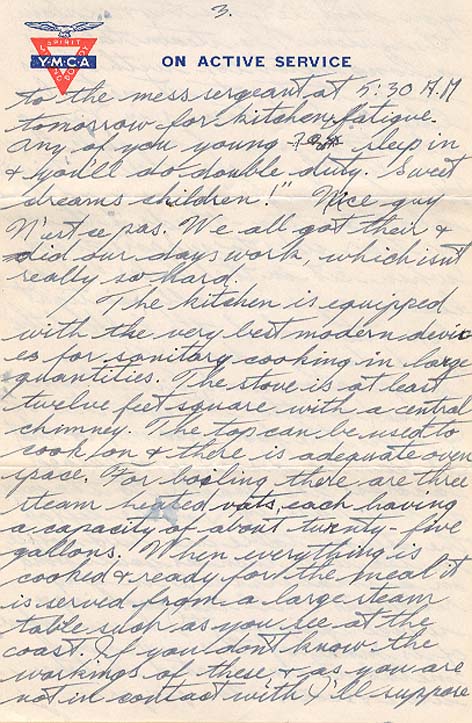 3.
SPIRIT
Y·M·C·A
ON ACTIVE SERVICE
to the mess sergeant at 5:30 A.M
tomorrow for kitchen fatigue.
Any of you young sleep in
& you'll do double duty. Sweet
dreams children!" Nice guy
N'est ce pas. We all got their &
did our days work, which isn't
really so hard.
The kitchen is equipped
with the very best modern devic
es for sanitary cooking in large
quantities. The stove is at least
twelve feet square with a central
chimney. The top can be used to
cook on & there is adequate oven
space. For boiling there are three
steam heated vats, each having
a capacity of about twenty-five
gallons. When everything is
cooked & ready for the meal it
is served from a large steam
table such as you see at the
coast. If you don't know the
workings of these, & as you are
not in contact with I'll suppose